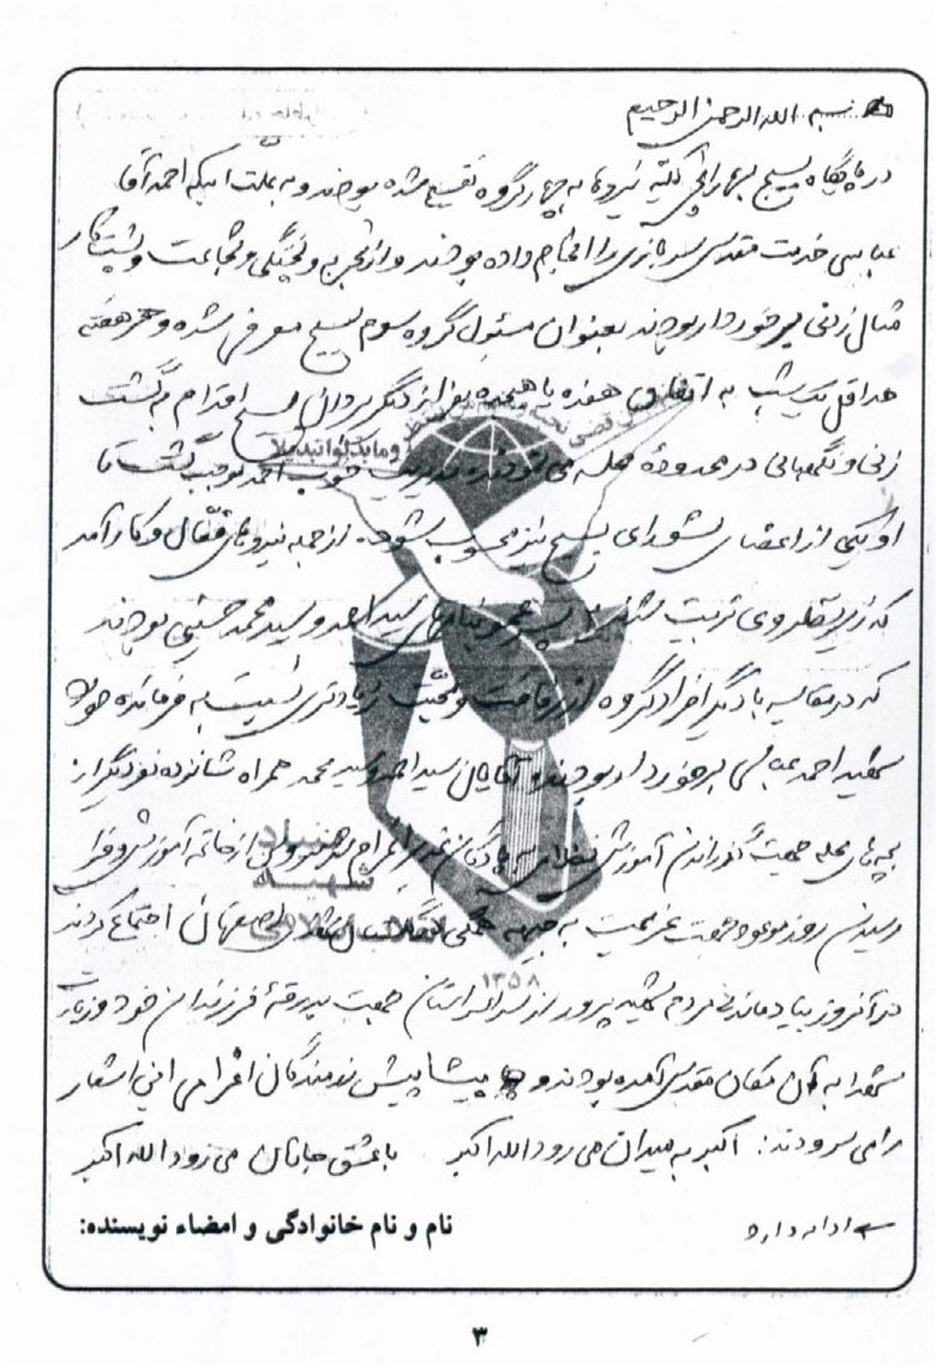 بسم الله الرحمن الرحیم
در پایگاه بسیج کلیه نیروها به چهار گروه تقسیم شده بودند و به علت اینکه احمد آقا
عباسی خدمت مقدس سربازی را انجام داده بودند و از تجربه و پختگی و شجاعت و پشتکار
مثال زدنی برخوردار بودند بعنوان مسئول گروه سوم بسیج معرفی شده و هر هفته
حداقل یک شب به اتفاق هفده یا هیجده نفر از دیگر برداران بسیج اقدام به گشت
زنی و نگهبانی در محدودهٔ محله می خوب احمد موجب گشت تا
او یکی از اعضای شورای بسیج نیز محسوب شود. از جمله نیروهای فعّال و کارآمد
که زیر نظر وی تربیت سید احمد و سید محمد حسینی بودند
که در مقایسه با دیگر افراد گروه از رفاقت و محبّت زیادتری نسبت به فرمانده خود
شهید احمد عباسی برخوردار بودند و آقایان سید احمد و سید محمد همراه شانزده نفر دیگر از
بچه های محله جهت گذراندن آموزش نظامی به پادگان اعزام شدند و پس از خاتمه آموزش و فرا
رسیدن روز موعود جهت عزیمت به جبهه همگی در گلستان شهدای اصفهان اجتماع کردند
در آنروز بیاد ماندنی مردم شهید پرور از سراسر استان جهت بدرقهٔ فرزندان خود و زیارت
شهدا به آن مکان مقدس آمده بودند و پیشاپیش رزمندگان اعزامی این اشعار
را می سرودند: اکبر به میدان می رود الله اکبر با عشق جانان می رود الله اکبر
ادامه دارد
نام و نام خانوادگی و امضاء نویسنده:
وما بدلوا تبدیلا
بنیاد
شهید
انقلاب اسلامی
۱۳۵۸
۳